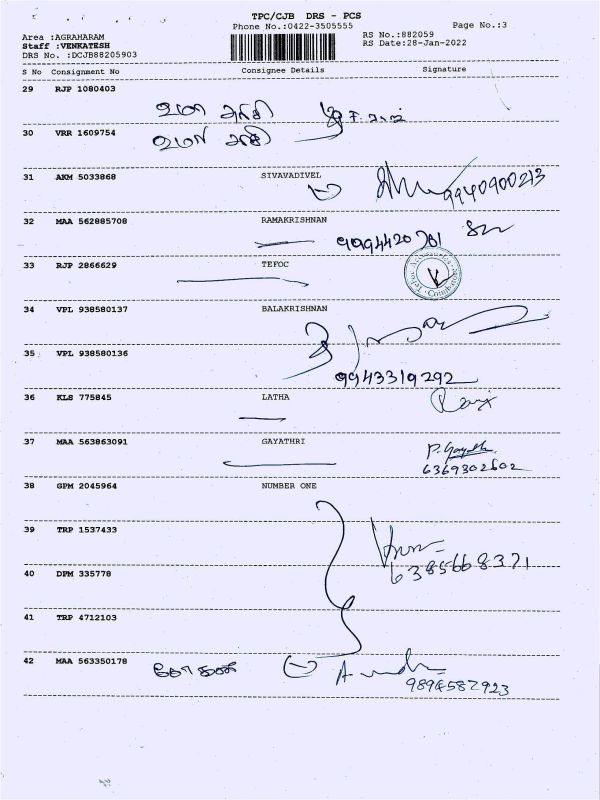 TPC/CJB DRS - PCS
Phone No.:0422-3505555 Page No.:3
Area :AGRAHARAM RS No.:882059
Staff :VENKATESH RS Date:28-Jan-2022
DRS No. :DCJB88205903
S No Consignment No Consignee Details Signature
29 RJP 1080403
உமா
30 VRR 1609754
31 AKM 5033868 SIVAVADIVEL
9940900213
32 MAA 562885708 RAMAKRISHNAN
9994420781
33 RJP 2866629 TEFOC
34 VPL 938580137 BALAKRISHNAN
35 VPL 938580136
9943319292
36 KLS 775845 LATHA
37 MAA 563863091 GAYATHRI
P. Gayathri
6369302602
38 GPM 2045964 NUMBER ONE
39 TRP 1537433
6385668371
40 DPM 335778
41 TRP 4712103
42 MAA 563350178
9894587923